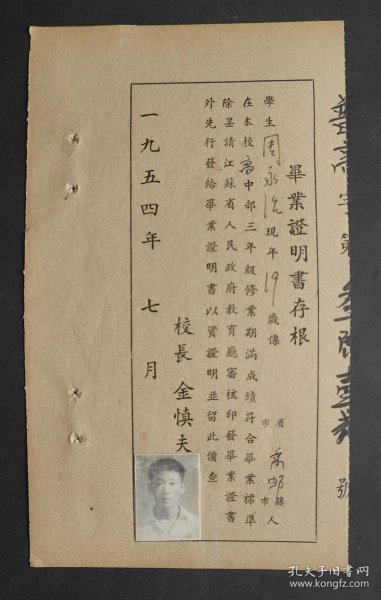 畢業證明書存根
學生周永治現年19歲係 省市 高郵 縣市 人
在本校高中部三年級修業期滿成績符合畢業標準
除呈請江蘇省人民政府教育廳審核印發畢業證書
外先行發給畢業證明書以資證明並留此備查
校長 金慎夫
一九五四年 七 月
孔夫子旧书网
www.kongfz.com